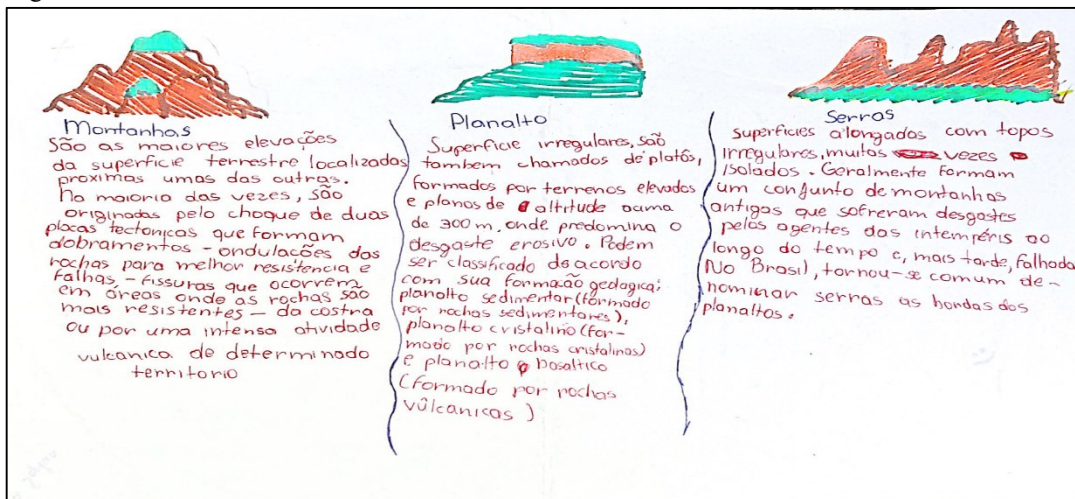 Montanhas
São as maiores elevações
da superficie terrestre localizadas
proximas umas das outras.
Na maioria das vezes, são
originadas pelo choque de duas
placas tectonicas que formam
dobramentos - ondulações das
rochas para melhor resistencia e
falhas, - fissuras que ocorrem
em áreas onde as rochas são
mais resistentes - da costra
ou por uma intensa atividade
vulcanica de determinado
territorio
Planalto
Superficie irregulares, são
tambem chamados de platôs,
formados por terrenos elevados
e planos de altitude acima
de 300 m, onde predomina o
desgaste erosivo. Podem
ser classificado de acordo
com sua formação geologica;
planalto sedimentar (formado
por rochas sedimentares),
planalto cristalino (for-
mado por rochas cristalinas)
e planalto basaltico
(formado por rochas
vûlcanicas)
Serras
Superficies alongadas com topos
irregulares, muitas vezes
isolados. Geralmente formam
um conjunto de montanhas
antigas que sofreram desgastes
pelos agentes dos intempéris ao
longo do tempo e, mais tarde, falhada
No Brasil, tornou-se comum de-
nominar serras as bordas dos
planaltos.